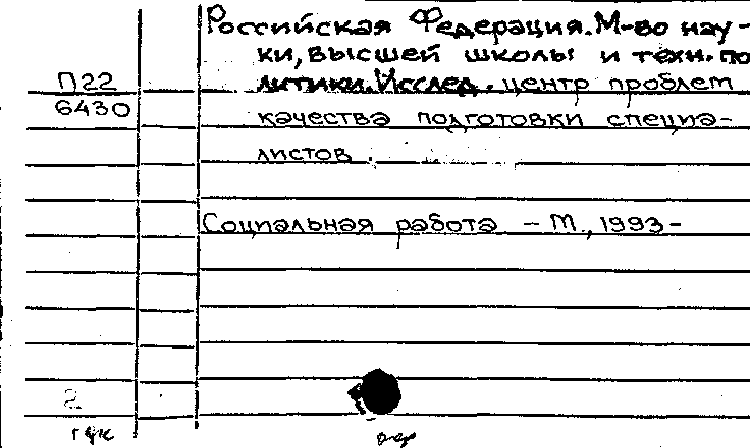 Российская Федерация. М-во нау-
ки, высшей школы и техн. по
литики. Исслед. центр проблем
П22
6430
качества подготовки специа-
листов.
Социальная работа - М., 1993-
2